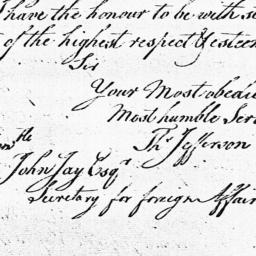 I have the honour to be with
of the highest respect & esteem
Sir
Your Most obedi
Most humble Ser
Th: Jefferson
John Jay Esqr
Secretary for foreign Affair